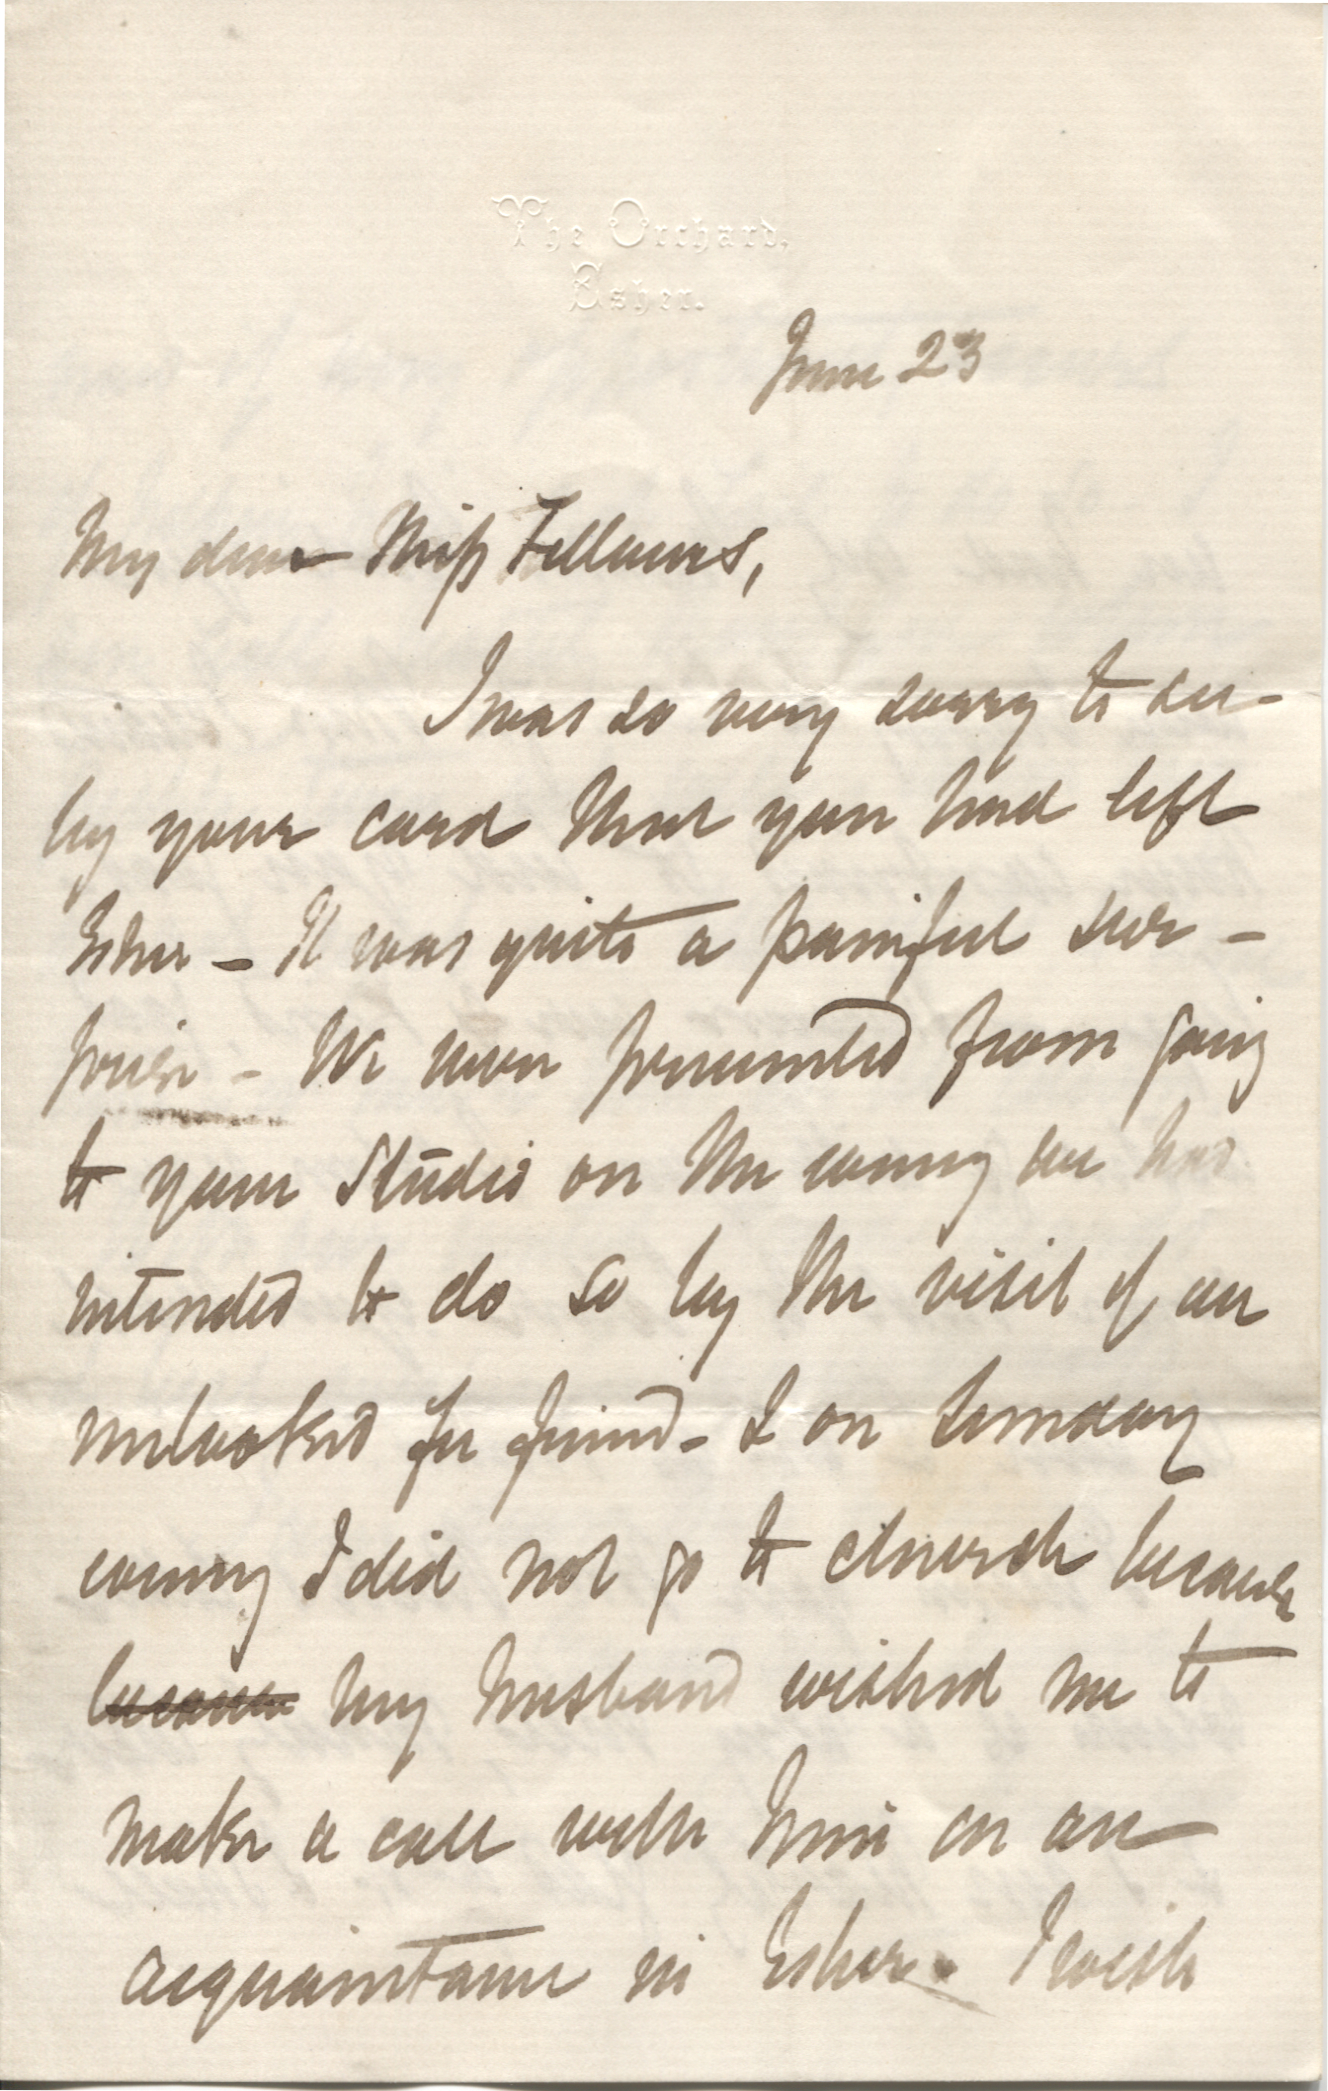 The Orchard,
Esher.
June 23
My dear Miss Fellows,
I was so very sorry to see
by your card that you had left
Esher - It was quite a painful sur-
prise - We were prevented from going
to your Studio on the evening we had
intended to do so by the visit of an
unlooked for friend - & on Sunday
evening I did not go to church because
because my husband wished me to
make a call with him on an
acquaintance in Esher - I wish